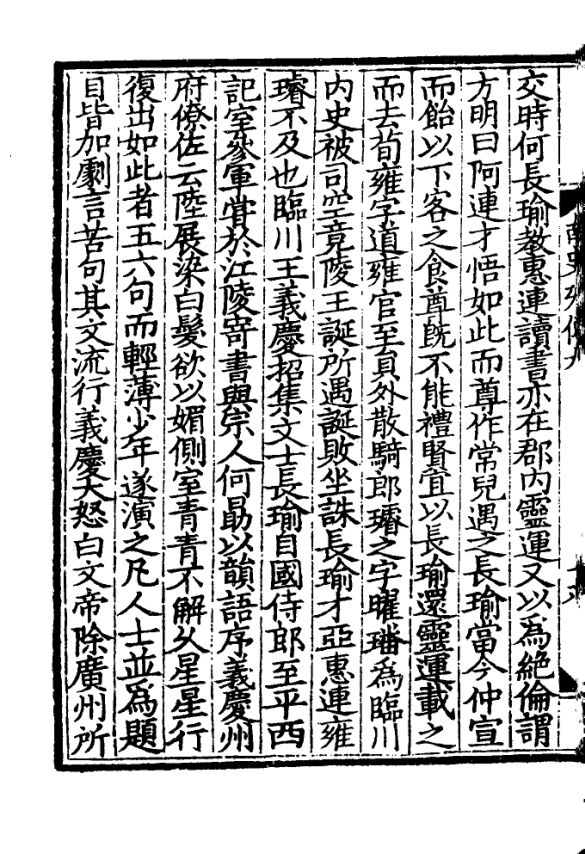 交時何長瑜教惠連讀書亦在郡内靈運又以為絶倫謂
方明曰阿連才悟如此而尊作常兒遇之長瑜當今仲宣
而飴以下客之食尊旣不能禮賢宜以長瑜還靈運載之
而去荀雍字道雍官至貟外散騎郎璿之字曜璠為臨川
内史被司空竟陵王誕所遇誕敗坐誅長瑜才亞惠連雍
璿不及也臨川王義慶招集文士長瑜自國侍郎至平西
記室參軍甞於江陵寄書與宗人何勗以韻語序義慶州
府僚佐云陸展染白髮欲以媚側室青青不解久星星行
復出如此者五六句而輕薄少年遂演之凡人士並為題
目皆加劇言苦句其文流行義慶大怒白文帝除廣州所